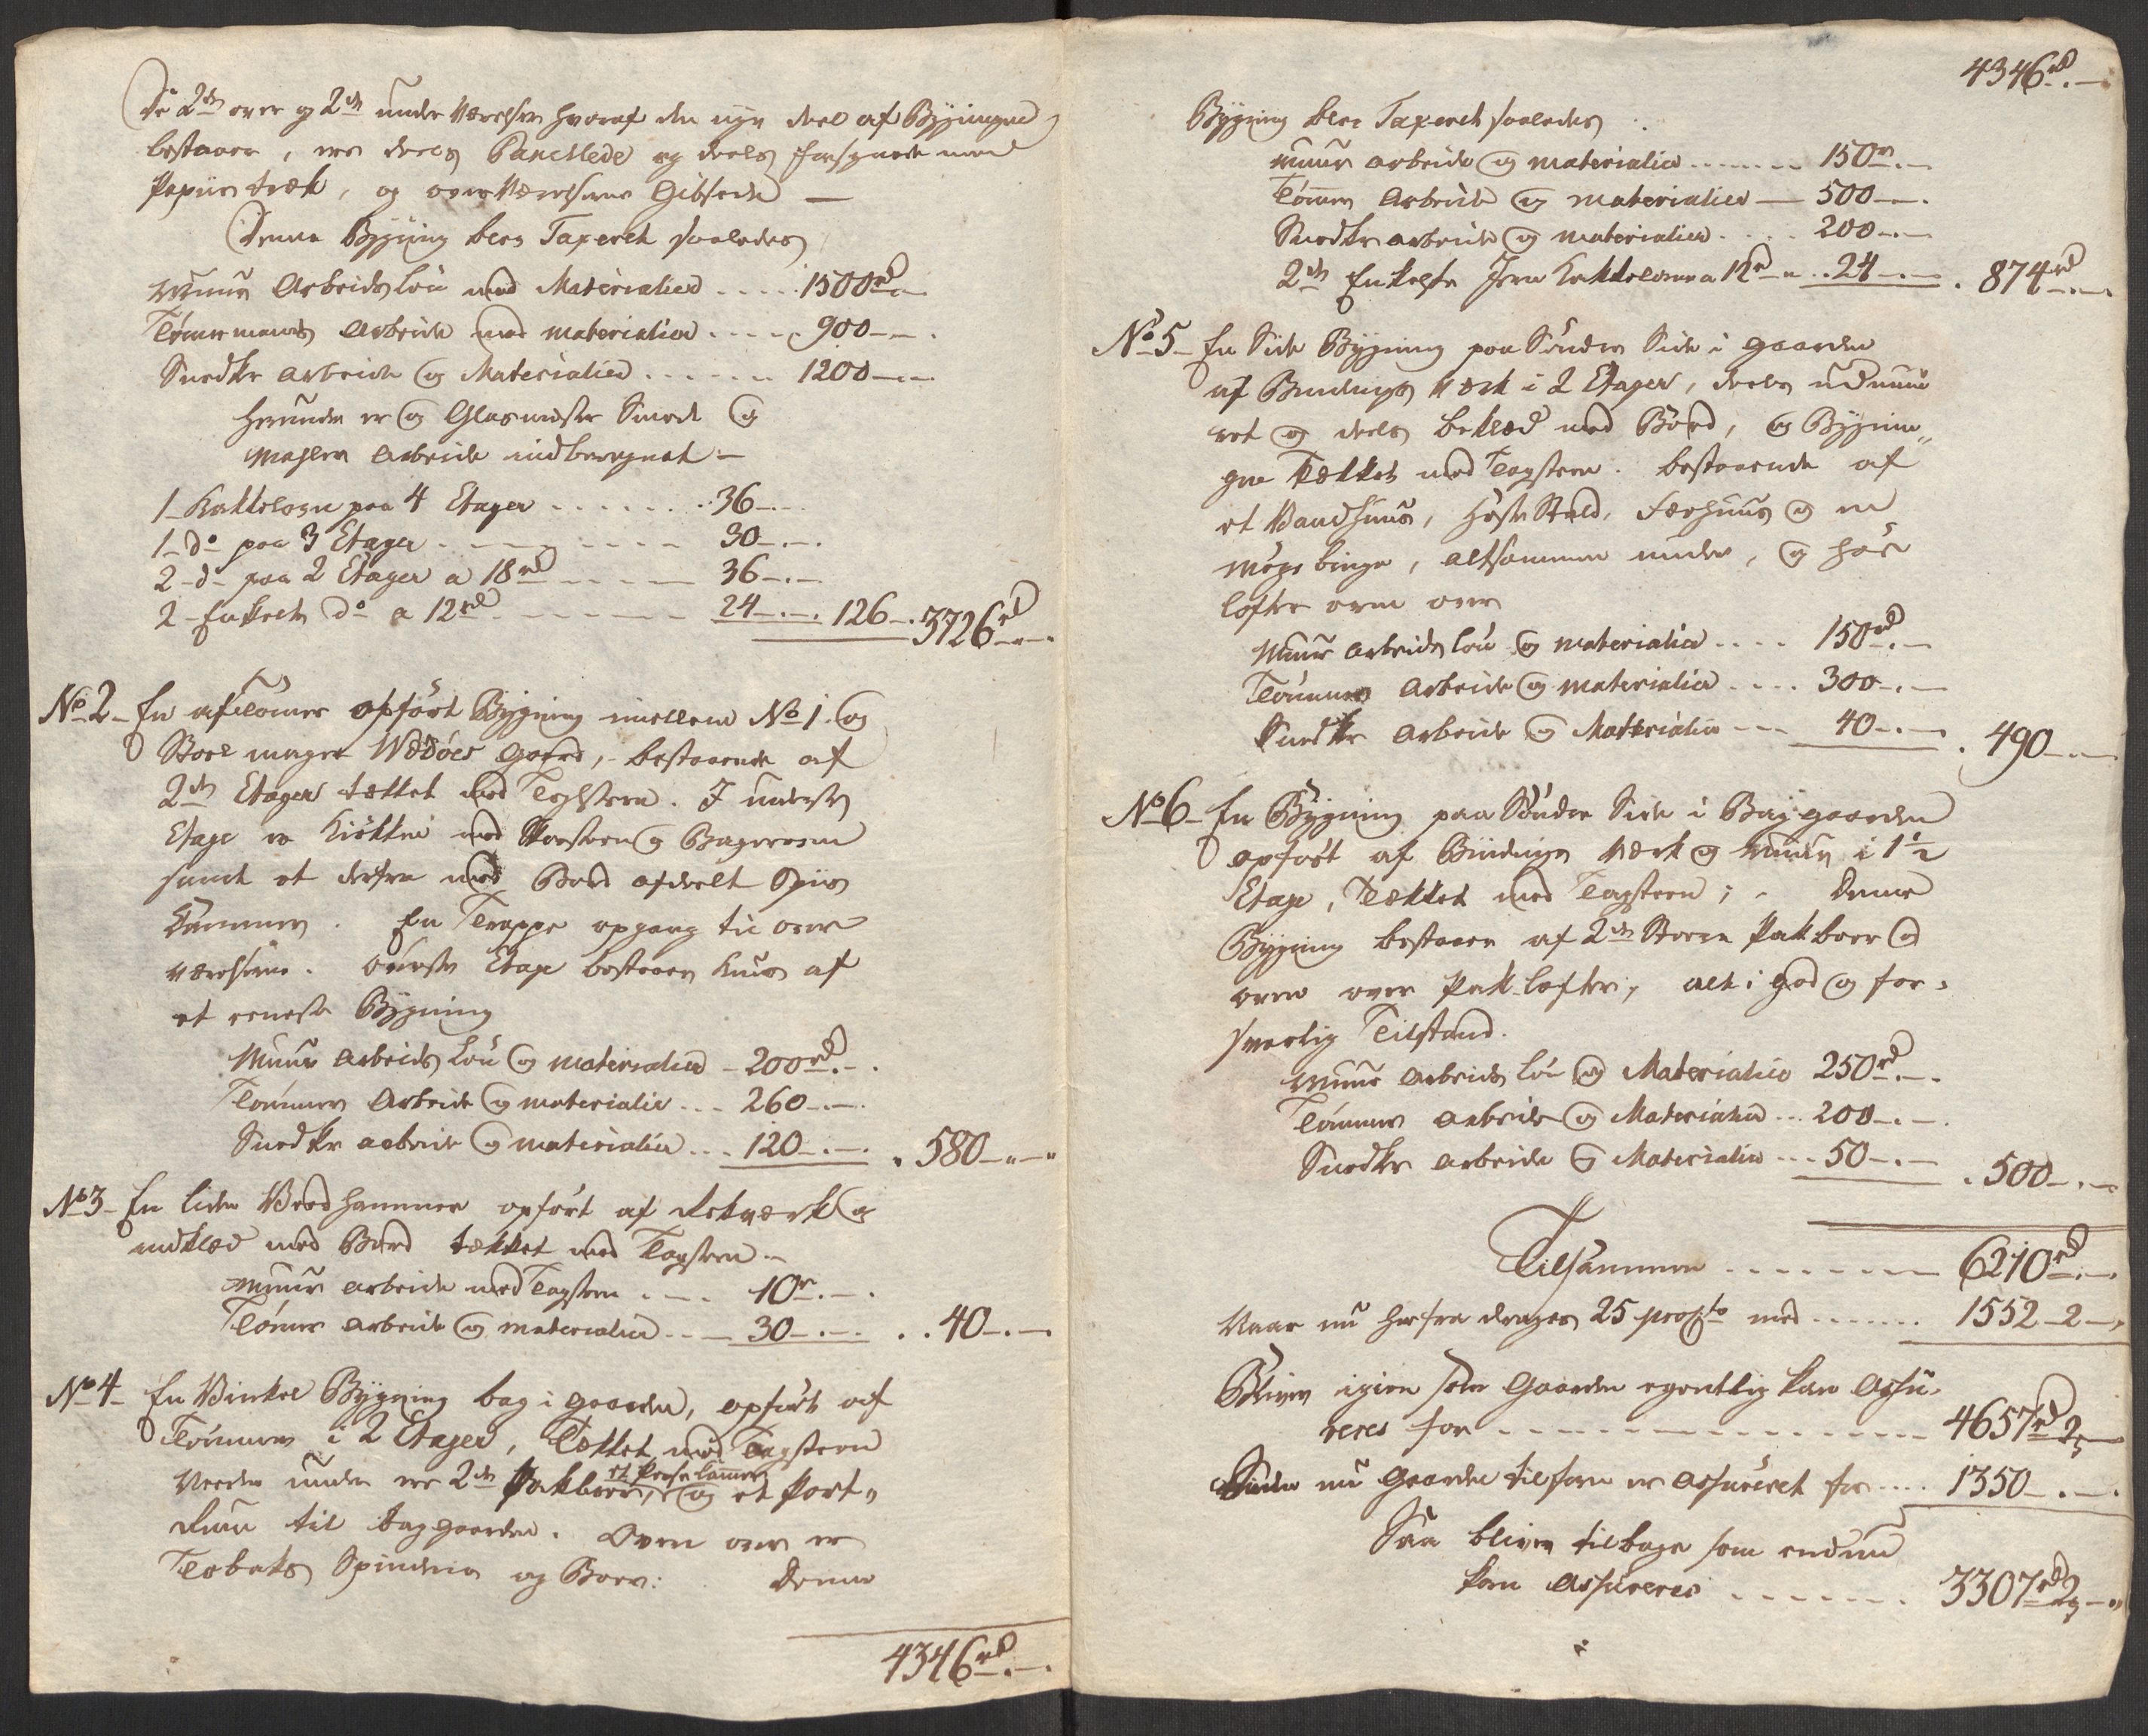 De 2de over og 2de under Værelser hvoraf den nye deel af Bygningen
bestaaer, ere deels Panelede og deels forsynede med
Papiirtræk, og over Værelserne Gibsede —
Denne Bygning blev Taxeret saaledes
Muur Arbeidslön med Materialier ..... 1500rd
Tömermands Arbeide med materialier .... 900 -
Snedker arbeide og Materialier ...... 1200 -
herunder er og Glasmester Smede og
Mahler Arbeide indberegnet -
1 Kakkelovn paa 4 Etager ....... 36 -
1 do paa 3 Etager ....... 30 -
2 - d - paa 2 Etager a 18rd ..... 36 -
2 - Enkelte do a 12rd ...... 24 - . 126 - . 3726rd
No 2 - En af Tömer opfört Bygning imellem No 1. og
Stoelmager gaard, - bestaaende af
2de Etager tækket med Teglsteen. I underste
Etage er Kiökken med Skorsteen og Bagerovn
samt et derfra med Bord afdeelt Spiis
Kammer. En Trappe opgang til over
værelserne. Överste Etage bestaaer kuns af
et eeneste Bygning
Muur Arbeids Lön og materialier - 200rd
Tömmer Arbeide og materialier ... 260 -
Snedker arbeide og materialier ... 120 - . 580 -
No 3 - En liden Brendkammer opfört af Rekværk og
indklæd med Bord tækket med Tagsteen -
Muur arbeide med Tagsteen .... 10r
Tömer Arbeide og materialier .... 30 - .. 40 -
No 4 - En Vinkel Bygning bag i gaarden, opfört af
Tömmer i 2 Etager, Tækket med Tagsteen
Neden under ere 2de Pakboer, et og et Port-
rum til baggaarden. Oven over er
Tobaks Spinderie og Boer: Denne
4346rd
4346rd
Bygning blev Taxeret saaledes
Muur arbeide og materialier ....... 150r
Tömmer Arbeide og materialier — 500 -
Snedker arbeide og materialier .... 200 -
2de Enkelte Jern Kakkelovne a 12r .. 24 - . 874rd
No 5 - En Side Bygning paa Söndre Side i gaarden
af Bindings Værk i 2 Etager, deels udmuu-
ret og deels beklæd med Bord, og Bygnin-
gen tækket med Tagsteen. bestaaende af
et Vandhuus, Heste Stald, Fæehuus og en
Mögebinge, altsammen under, og höe
lofter oven over
Muur Arbeidslön og materialier .... 150rd
Tömmer Arbeide og materialier .... 300 -
Snedker Arbeide og Materialier --- 40 - . 490 -
No 6 - En Bygning paa Söndre Side i Baggaarden
opfört af Bindings Værk og Muur i 1 1/2
Etage, Tækket med Tagsteen; - Denne
Bygning bestaaer af 2de Store Pakboer og
oven over Pak-lofter; alt i god og for-
svarlig Tilstand.
Muur Arbeids lön og Materialier 250rd
Tömmer arbeide og Materialier ... 200 -
Snedker Arbeide og Materialier ... 50 - . 500 -
Tilsammen ....... 6210rd
Naar nu herfra drages 25 proCto med ....... 1552 - 2 -
Bliver igien som Gaarden egentlig kan Assu-
reres for ....... 4657rd 2
Siden nu Gaarden tilforn er Assureret for .... 1350 -
Saa bliver tilbage som endnu
kan Assureres ....... 3307rd 2